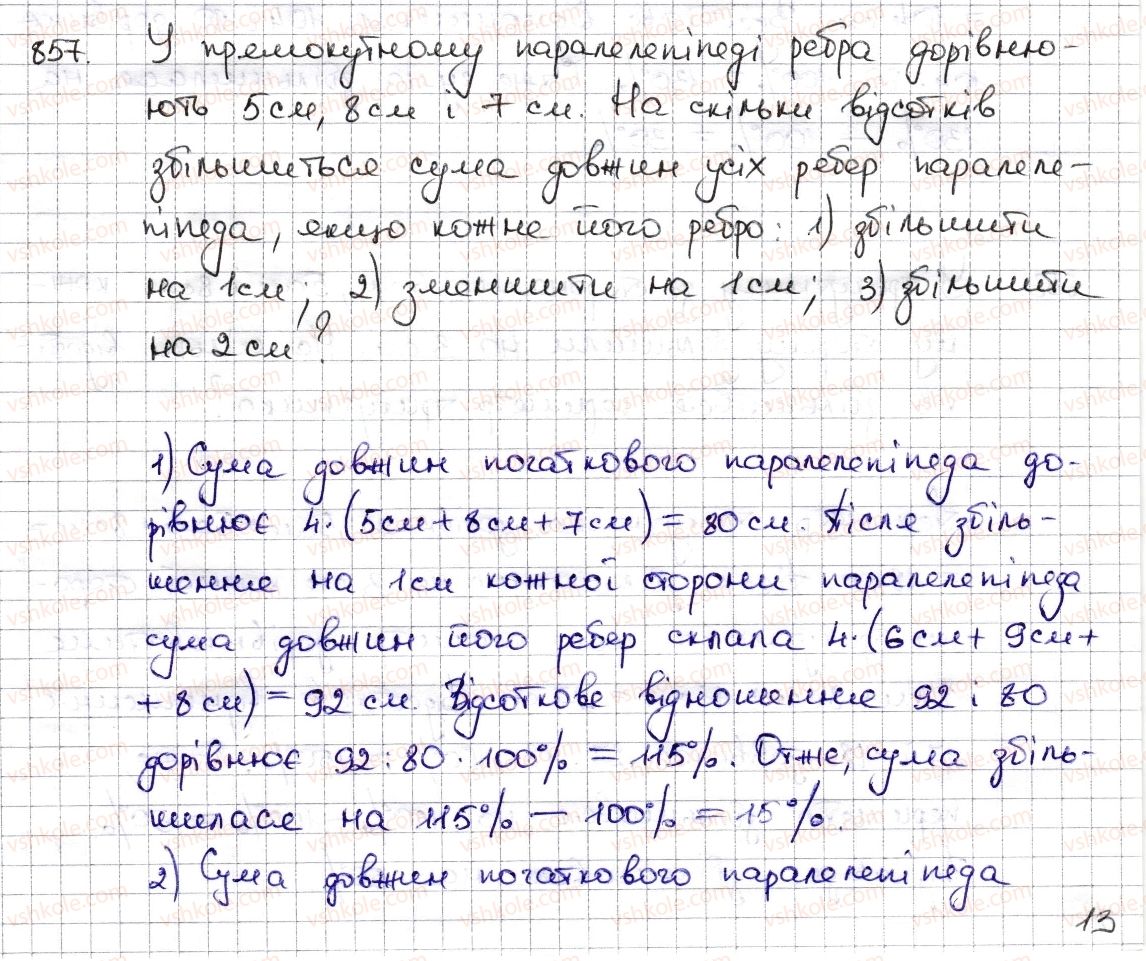 857. У прямокутному паралелепіпеді ребра дорівню-
ють 5 см, 8 см і 7 см. На скільки відсотків
збільшиться сума довжин усіх ребер паралеле-
піпеда, якщо кожне його ребро: 1) збільшити
на 1 см; 2) зменшити на 1 см; 3) збільшити
на 2 см?
1) Сума довжин початкового паралелепіпеда до-
рівнює 4·(5 см + 8 см + 7 см) = 80 см. Після збіль-
шення на 1 см кожної сторони паралелепіпеда
сума довжин його ребер склала 4·(6 см + 9 см +
+ 8 см) = 92 см. Відсоткове відношення 92 і 80
дорівнює 92 : 80 · 100% = 115%. Отже, сума збіль-
шилася на 115% – 100% = 15%.
2) Сума довжин початкового паралелепіпеда
13
vshkole.com